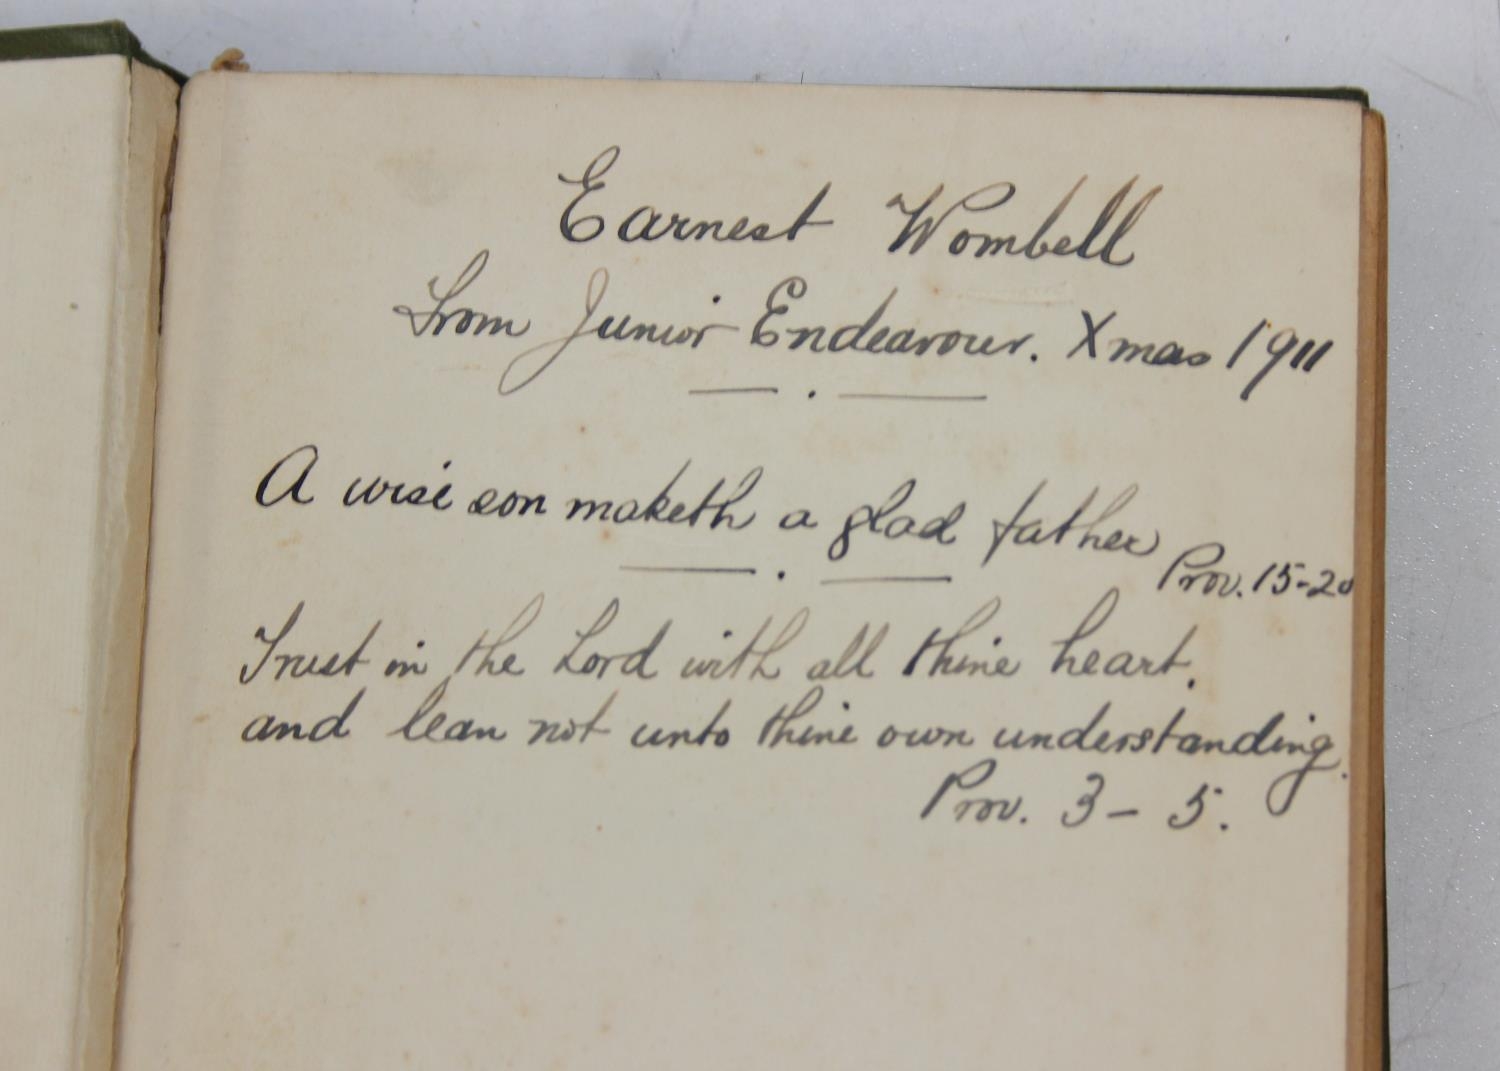 Earnest Wombell
From Junior Endeavour. Xmas 1911
A wise son maketh a glad father
Prov. 15-20
Trust in the Lord with all thine heart,
and lean not unto thine own understanding.
Prov. 3-5.